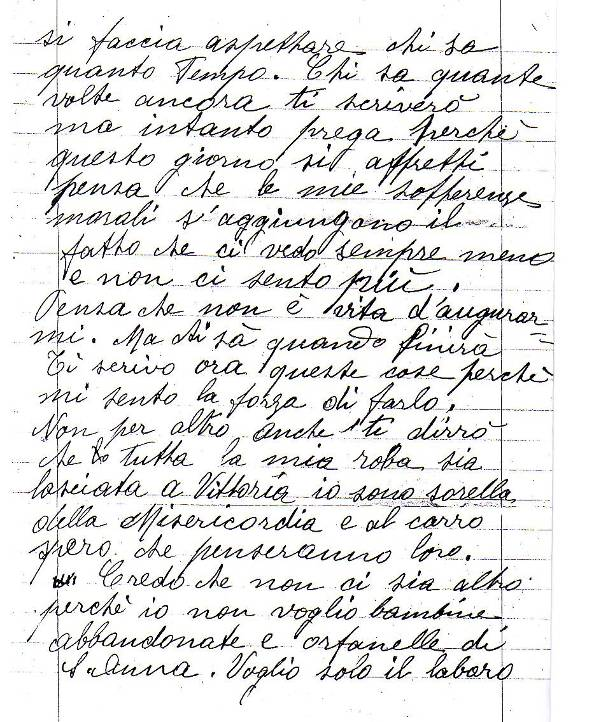 si faccia aspettare chi sa
quanto Tempo. Chi sa quante
volte ancora ti scriverò
ma intanto prega perchè
questo giorno si affretti
pensa che le mie sofferenze
morali s'aggiungono il
fatto che ci vedo sempre meno
e non ci sento più.
Pensa che non è vita d'augurar=
mi. Ma chi sà quando finirà
Ti scrivo ora queste cose perchè
mi sento la forza di farlo.
Non per altro anche ti dirrò
che tutta la mia roba sia
lasciata a Vittoria io sono sorella
della Misericordia e al carro
spero che penseranno loro.
Credo che non ci sia altro
perchè io non voglio bambine
abbandonate e orfanelle di
S. Anna. Voglio solo il labaro